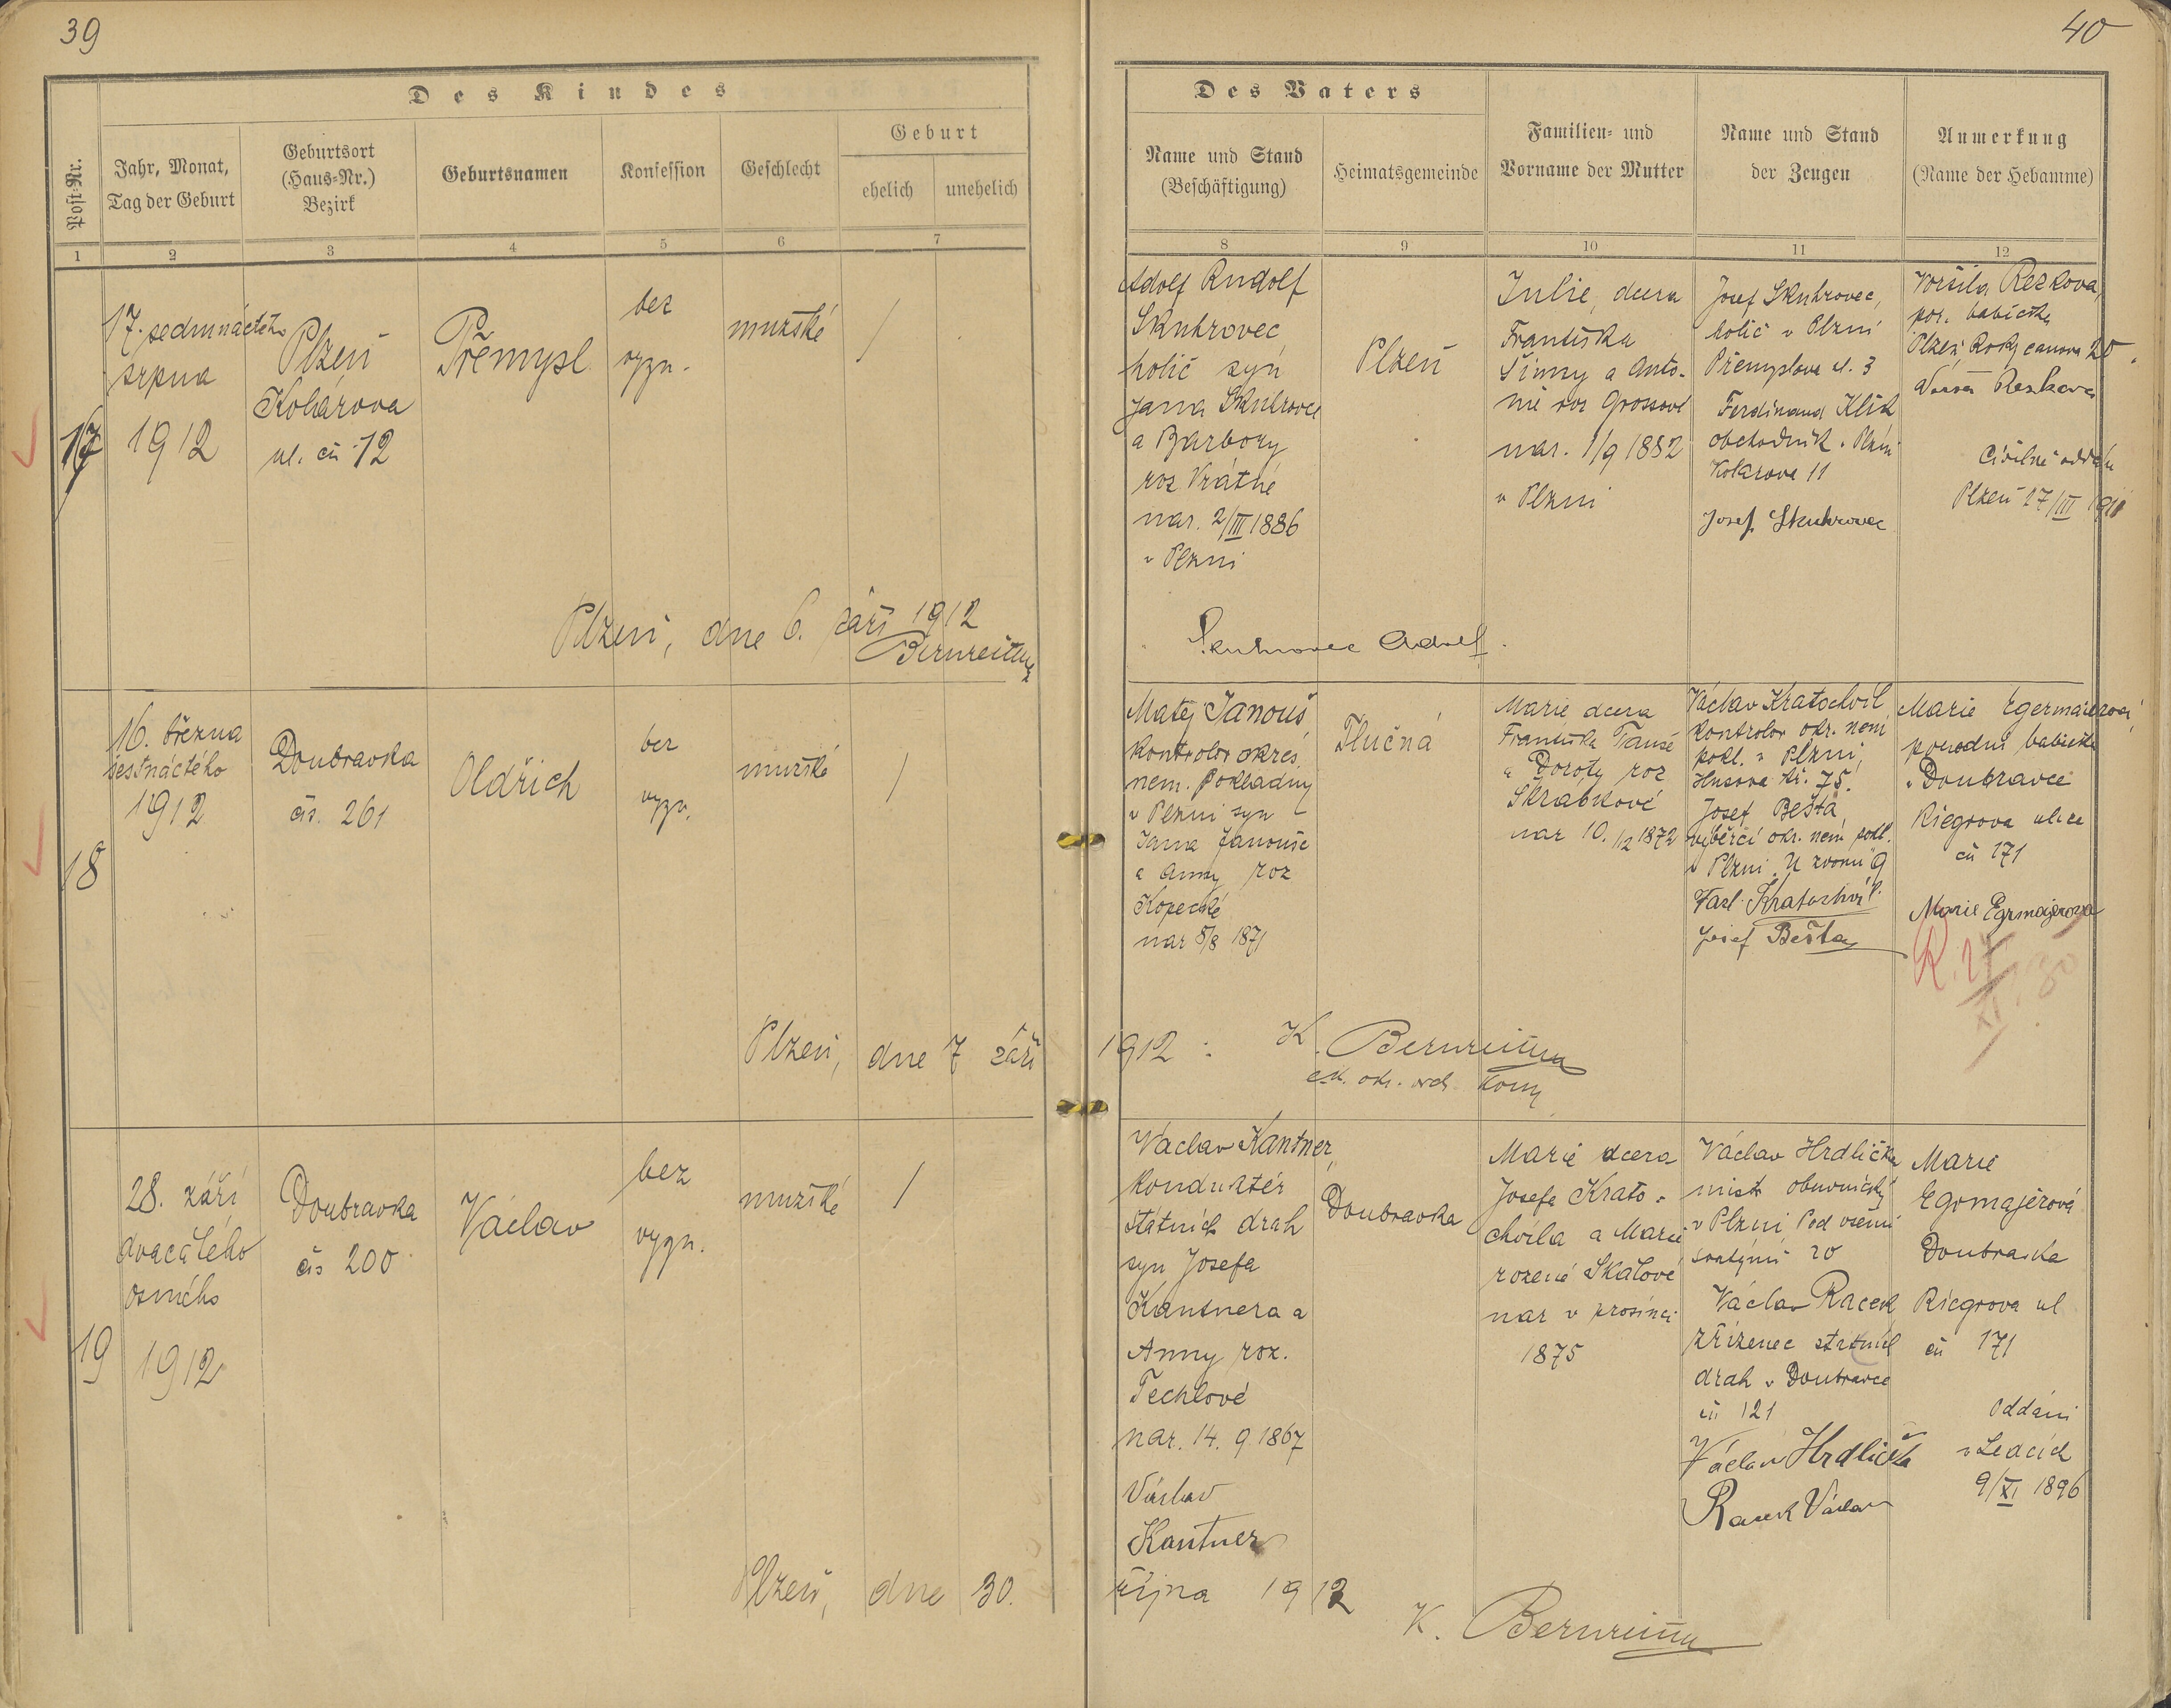 39
Des Kindes
Post-Nr.
Jahr, Monat,
Tag der Geburt
Geburtsort
(Haus-Nr.)
Bezirk
Geburtsnamen
Konfession
Geschlecht
Geburt
ehelich
unehelich
1
2
3
4
5
6
7
17
17. sedmnáctého
srpna
1912
Plzeň
Kolárova
ul. čís 12
Přemysl
bez
vyzn.
mužské
/
Plzeň, dne 6. září 1912
18
16. března
šestnáctého
1912
Doubravka
čís. 261
Oldřich
bez
vyzn.
mužské
/
Plzeň, dne 7 září
19
28. září
dvacátého
osmého
1912
Doubravka
čís 200
Václav
bez
vyzn.
mužské
/
Plzeň, dne 30.
40
Des Vaters
Name und Stand
(Beschäftigung)
Heimatsgemeinde
Familien- und
Vorname der Mutter
Name und Stand
der Zeugen
Anmerkung
(Name der Hebamme)
8
9
10
11
12
Adolf Rudolf
Skuhrovec
holič syn
Jana Skuhrovce
a Barbory
roz Vrátné
nar. 2/III 1886
v Plzni
Plzeň
Julie, dcera
Františka
Šimny a Anto-
nie roz Grossové
nar. 1/9 1882
v Plzni
Josef Skuhrovec,
holič v Plzni
Přemyslova ul. 3
Ferdinand Klik
obchodník v Plzni
Kolarova 11
Josef Skuhrovec
Voršila Reskova,
por. babička
Plzeň Rokycanova 20.
Reskova
Civilně oddáni
Plzeň 27/III 1911
Skuhrovec Adolf.
Matěj Janouš
kontrolor okres.
nem. pokladny
v Plzni syn
Jana Janouše
a Anny roz
Kopecké
nar 5/8 1871
Tlučná
Marie dcera
Františka
a Doroty roz
Škrábkové
nar 10. /12 1872
Václav Kratochvíl
kontrolor okr. nem
pokl. v Plzni,
Husova tř. 75.
Josef Bešta,
výběrčí okr. nem pokl.
v Plzni. U zvonu 9
Kratochvíl.
Josef Bešta
Marie Egermaierová,
porodní babička
v Doubravce
Riegrova ulice
čís 171
Marie Egrmajerova
R. 27/XI. 30.
1912. K. Bernreiter
Václav Kantner,
konduktér
státních drah
syn Josefa
Kantnera a
Anny roz.
Techlové
nar. 14. 9. 1867
Václav
Kantner
Doubravka
Marie dcera
Josefa Krato-
chvíla a Marie
rozené Skalové
nar v prosinci
1875
Václav Hrdlička
mistr obuvnický
v Plzni Pod všemi
svatými 20
Václav Racek
zřízenec státních
drah v Doubravce
čís 121
Václav Hrdlička
Racek Václav
Marie
Egrmajerová
Doubravka
Riegrova ul
čís 171
Oddáni
v Ledcích
9/XI 1896
října 1912
K. Bernreiter